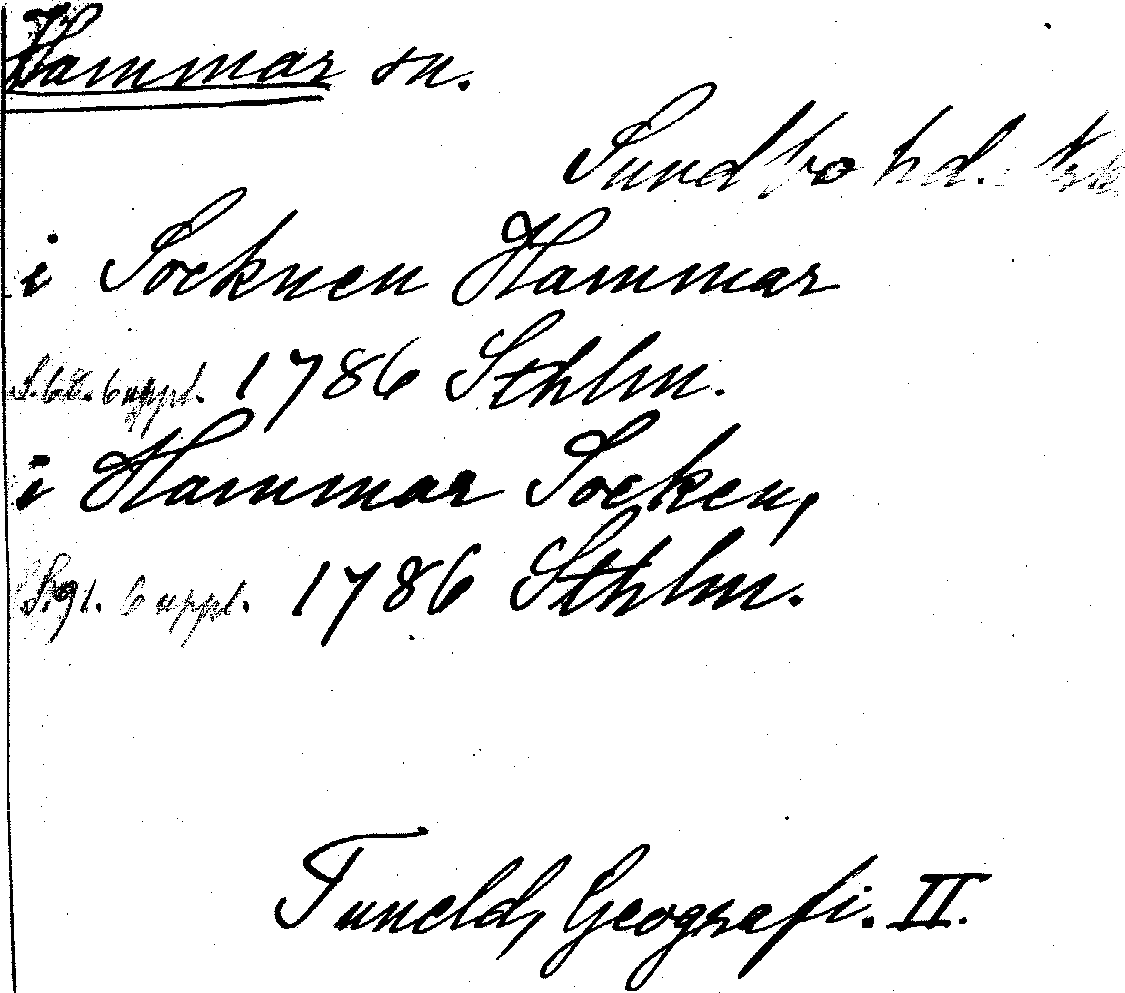 Hammar sn.
Sundbo hd. Nrk
i Socknen Hammar
6 uppl. 1786 Sthlm.
i Hammar Socken,
S. 91. 6 uppl. 1786 Sthlm.
Tuneld, Geografi. II.